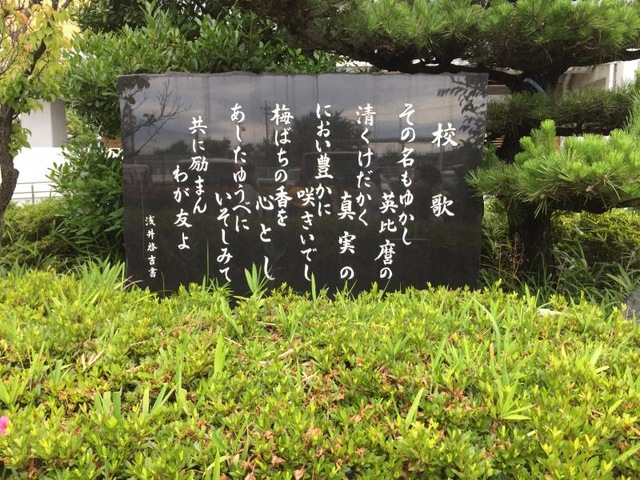 校歌
その名もゆかし
英比麿の
清くけだかく
真実の
におい豊かに
咲さいでし
梅ばちの香を
心とし
あしたゆうべに
いそしみて
共に励まん
わが友よ
浅井啓吉書